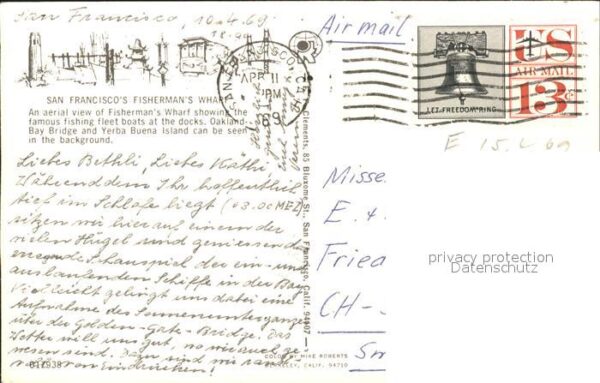 San Francisco, 10.4.69
18.00
Air mail
SAN FRANCISCO
APR 11
PM
1969
LET FREEDOM RING
US
AIR MAIL
13c
E 15.4.69
SAN FRANCISCO'S FISHERMAN'S WHARF
An aerial view of Fisherman's Wharf showing the
famous fishing fleet boats at the docks. Oakland-
Bay Bridge and Yerba Buena Island can be seen
in the background.
Liebes Bethli, Liebes Käthi,
Währenddem Ihr hoffentlich
tief im Schlafe liegt (03.00 MEZ)
sitzen wir hier auf einem der
vielen Hügel und geniessen
das Schauspiel der ein- und
auslaufenden Schiffe in der Bay.
Vielleicht gelingt uns dabei eine
Aufnahme des Sonnenunterganges
über der Golden-Gate-Bridge. Das
Wetter will uns gut, wo wir auch ge-
wesen sind. Dazu sind wir
voll von Eindrücken!
Clements, 85 Bluxome St., San Francisco, Calif. 94107
Misse
E. +
Fried
CH-
Sw
privacy protection
Datenschutz
COLOR BY MIKE ROBERTS
BERKELEY, CALIF. 94710